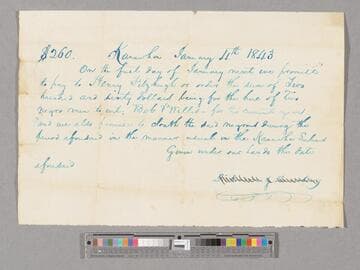 $260. Kanawha January 4th 1843
On the first day of January next we promise
to pay to Henry Fitzhugh or order the sum of Two
hundred and sixty dollars being for the hire of two
negro men to wit, Bob &
and we also promise to cloath the said negroes during the
period aforesaid in the manner usual in the Kanawha Salines
Given under our hands the date
aforesaid